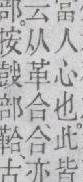 當人心也。此皆
云从革合合亦
部按鼔部鞈古